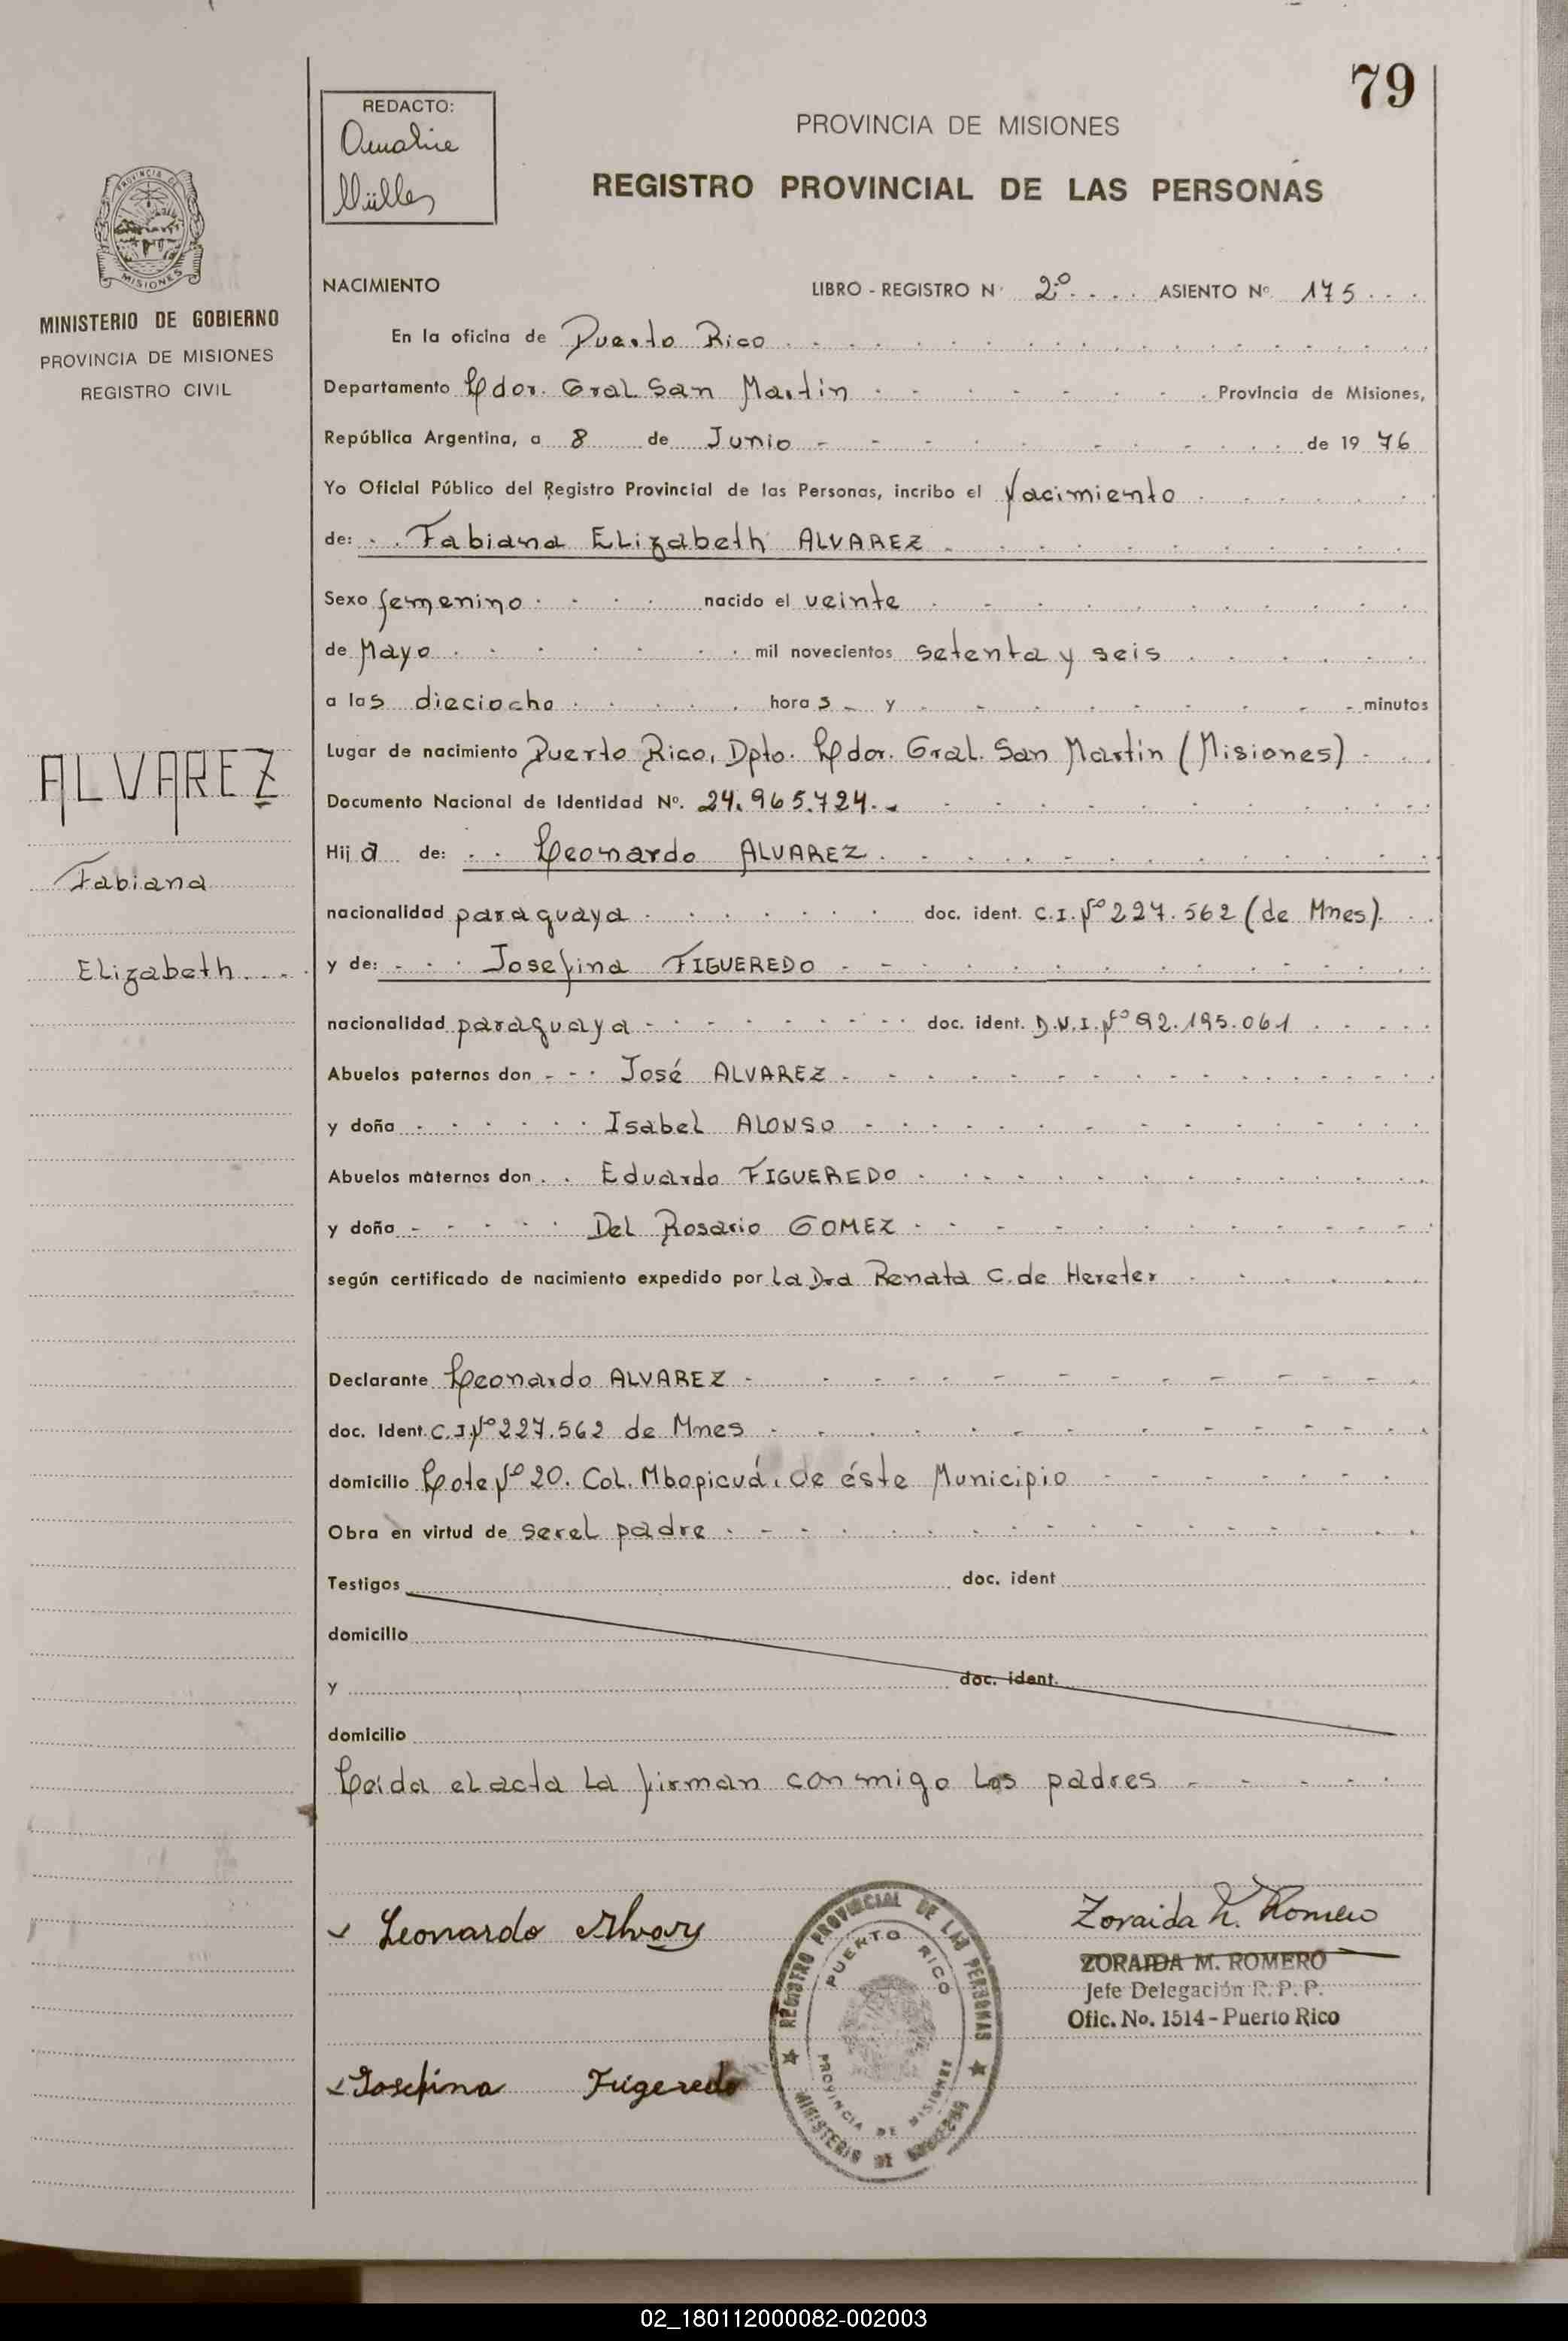 79
REDACTO:
Amalia
Müller
PROVINCIA DE MISIONES
REGISTRO PROVINCIAL DE LAS PERSONAS
PROVINCIA DE
MISIONES
MINISTERIO DE GOBIERNO
PROVINCIA DE MISIONES
REGISTRO CIVIL
NACIMIENTO LIBRO - REGISTRO N° 2º ASIENTO Nº 175
En la oficina de Puerto Rico
Departamento Ldor. Gral San Martín Provincia de Misiones,
República Argentina, a 8 de Junio de 1976
Yo Oficial Público del Registro Provincial de las Personas, incribo el Nacimiento
de: Fabiana Elizabeth ALVAREZ
Sexo femenino nacido el veinte
de Mayo mil novecientos setenta y seis
a las dieciocho horas y minutos
Lugar de nacimiento Puerto Rico, Dpto. Ldor. Gral. San Martín (Misiones)
Documento Nacional de Identidad Nº. 24.965.724.
Hija de: Leonardo ALVAREZ
nacionalidad paraguaya doc. ident. C.I. Nº 227.562 (de Mnes).
y de: Josefina FIGUEREDO
nacionalidad paraguaya doc. ident. D.N.I. Nº 92.195.061
Abuelos paternos don José ALVAREZ
y doña Isabel ALONSO
Abuelos maternos don Eduardo FIGUEREDO
y doña Del Rosario GOMEZ
según certificado de nacimiento expedido por la Dra Renata C. de Hereter
Declarante Leonardo ALVAREZ
doc. Ident. C.I. Nº 227.562 de Mnes
domicilio Lote Nº 20. Col. Mbopicuá, de éste Municipio
Obra en virtud de ser el padre
Testigos doc. ident
domicilio
y doc. ident.
domicilio
Leída el acta la firman conmigo los padres
ALVAREZ
Fabiana
Elizabeth
Leonardo Alvarez
Josefina Figeredo
REGISTRO PROVINCIAL DE LAS PERSONAS
PUERTO RICO
PROVINCIA DE MISIONES
MINISTERIO DE GOBIERNO
Zoraida M. Romero
ZORAIDA M. ROMERO
Jefe Delegación R. P. P.
Ofic. No. 1514 - Puerto Rico
02_180112000082-002003